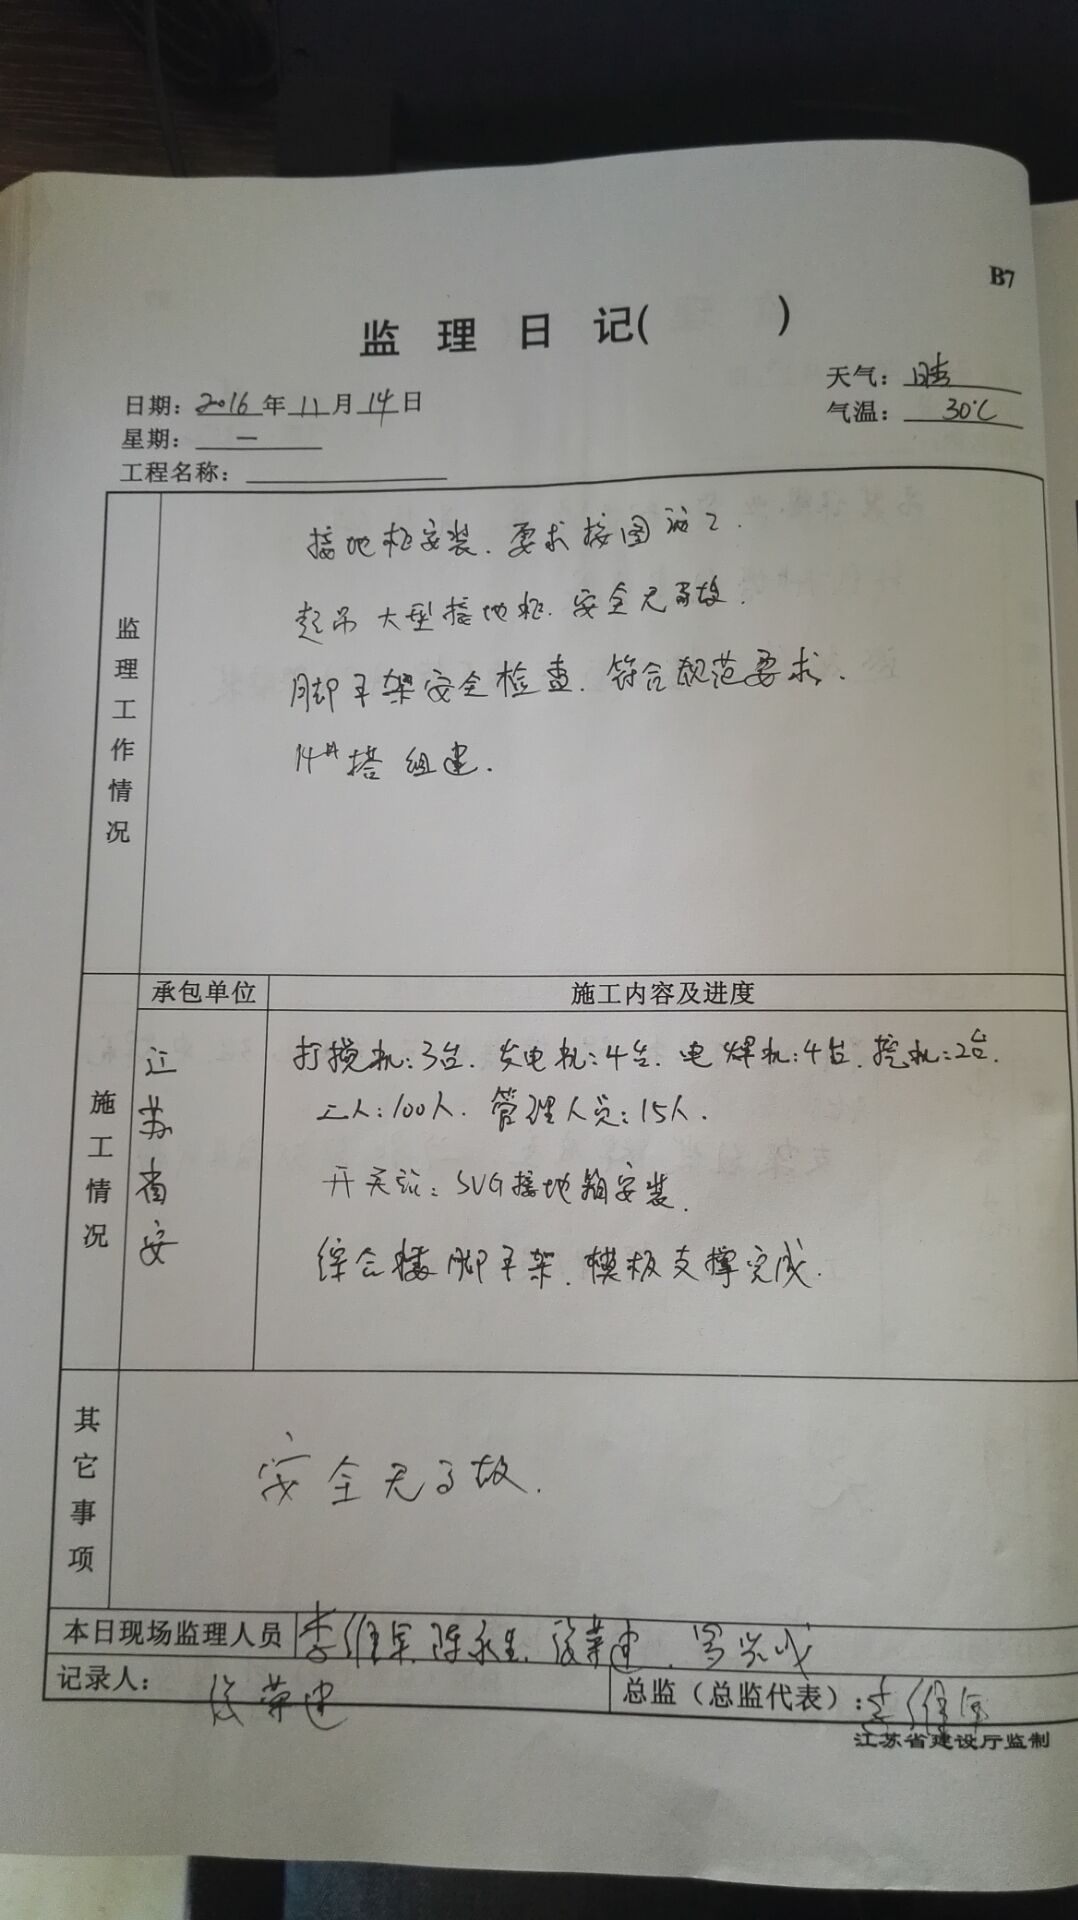 B7
监 理 日 记(　　)
天气：晴
日期：2016年11月14日
气温：30℃
星期：一
工程名称：
监理工作情况
接地柜安装.要求按图施工.
起吊大型接地柜.安全无事故.
脚手架安全检查.符合规范要求.
14#搭组建.
承包单位
施工内容及进度
施工情况
江苏省安
打搅机:3台.发电机:4台.电焊机:4台.挖机:2台.
工人:100人.管理人员:15人.
开关站:SVG接地箱安装.
综合楼脚手架.模板支撑完成.
其它事项
安全无事故.
本日现场监理人员 李维军.陈永生.
记录人：
总监（总监代表）：李维军
江苏省建设厅监制